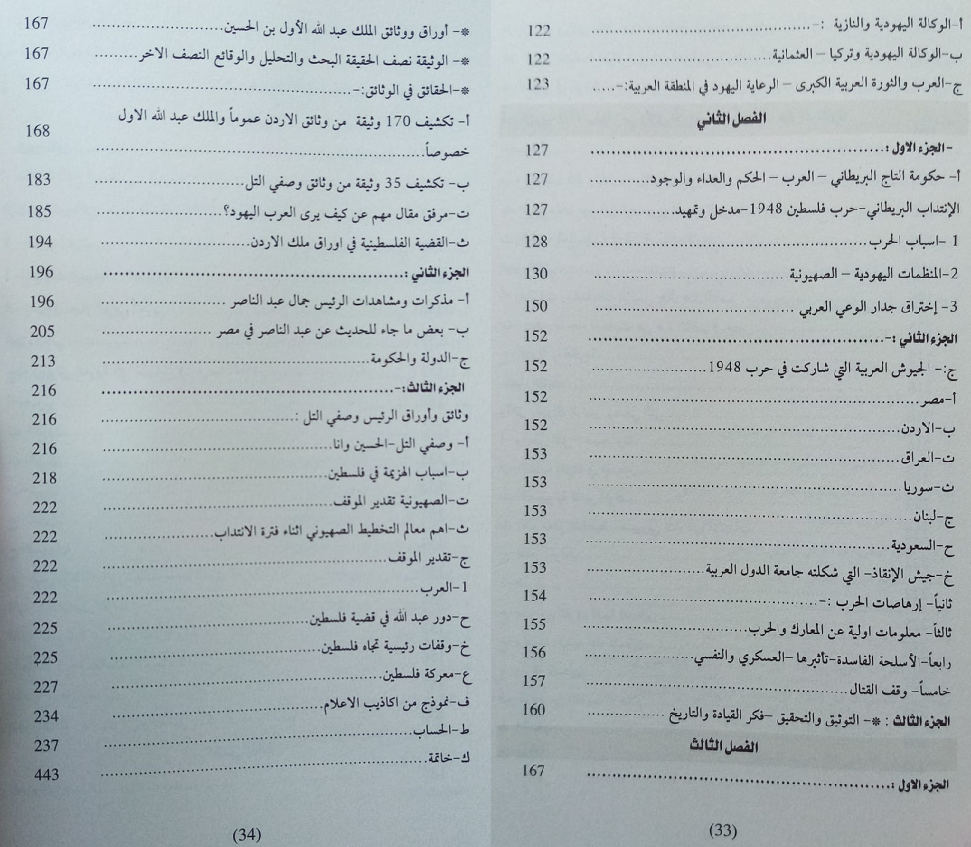 أ-الوكالة اليهودية والنازية :- 122
ب-الوكالة اليهودية وتركيا - العثمانية 122
ج-العرب والثورة العربية الكبرى - الرعاية اليهود في المنطقة العربية:- 123
الفصل الثاني
-الجزء الاول : 127
أ- حكومة التاج البريطاني - العرب - الحكم والعداء والوجود 127
الإنتداب البريطاني-حرب فلسطين 1948-مدخل وتمهيد 127
1 -اسباب الحرب 128
2-المنظمات اليهودية - الصهيونية 130
3- إختراق جدار الوعي العربي 150
الجزء الثاني :- 152
ج:- لجيوش العربية التي شاركت في حرب 1948 152
أ-مصر 152
ب-الاردن 152
ت-العراق 153
ث-سوريا 153
ج-لبنان 153
ح-السعودية 153
خ-جيش الإنقاذ- التي شكلته جامعة الدول العربية 153
ثانياً- إرهاصات الحرب :- 154
ثالثاً- معلومات اولية عن المعارك ولحرب 155
رابعاً-لأسلحة الفاسدة-تأثيرها -العسكري والنفسي 156
خامساً- وقف القتال 157
الجزء الثالث : *- التوثيق والتحقيق -فكر القيادة والتاريخ 160
الفصل الثالث
الجزء الاول : 167
(33)
*- أوراق ووثائق الملك عبد الله الأول بن الحسين 167
*- الوثيقة نصف الحقيقة البحث والتحليل والوقائع النصف الاخر 167
*-الحقائق في الوثائق:- 167
أ- تكشيف 170 وثيقة من وثائق الاردن عموماً والملك عبد الله الاول
خصوصاً 168
ب- تكشيف 35 وثيقة من وثائق وصفي التل 183
ت-مرفق مقال مهم عن كيف يرى العرب اليهود؟ 185
ث-القضية الفلسطينية في اوراق ملك الاردن 194
الجزء الثاني : 196
أ- مذكرات ومشاهدات الرئيس جمال عبد الناصر 196
ب- بعض ما جاء للحديث عن عبد الناصر في مصر 205
ج-الدولة والحكومة 213
الجزء الثالث:- 216
وثائق وأوراق الرئيس وصفي التل : 216
أ- وصفي التل-الحسين وانا 216
ب-اسباب الهزيمة في فلسطين 218
ت-الصهيونية تقدير الموقف 222
ث-اهم معالم التخطيط الصهيوني اثناء فترة الانتداب 222
ج-تقدير الموقف 222
1-العرب 222
ح-دور عبد الله في قضية فلسطين 225
خ-وقفات رئيسية تجاه فلسطين 225
ع-معركة فلسطين 227
ف-نموذج من اكاذيب الاعلام 234
ط-الحساب 237
ك-خاتمة 443
(34)